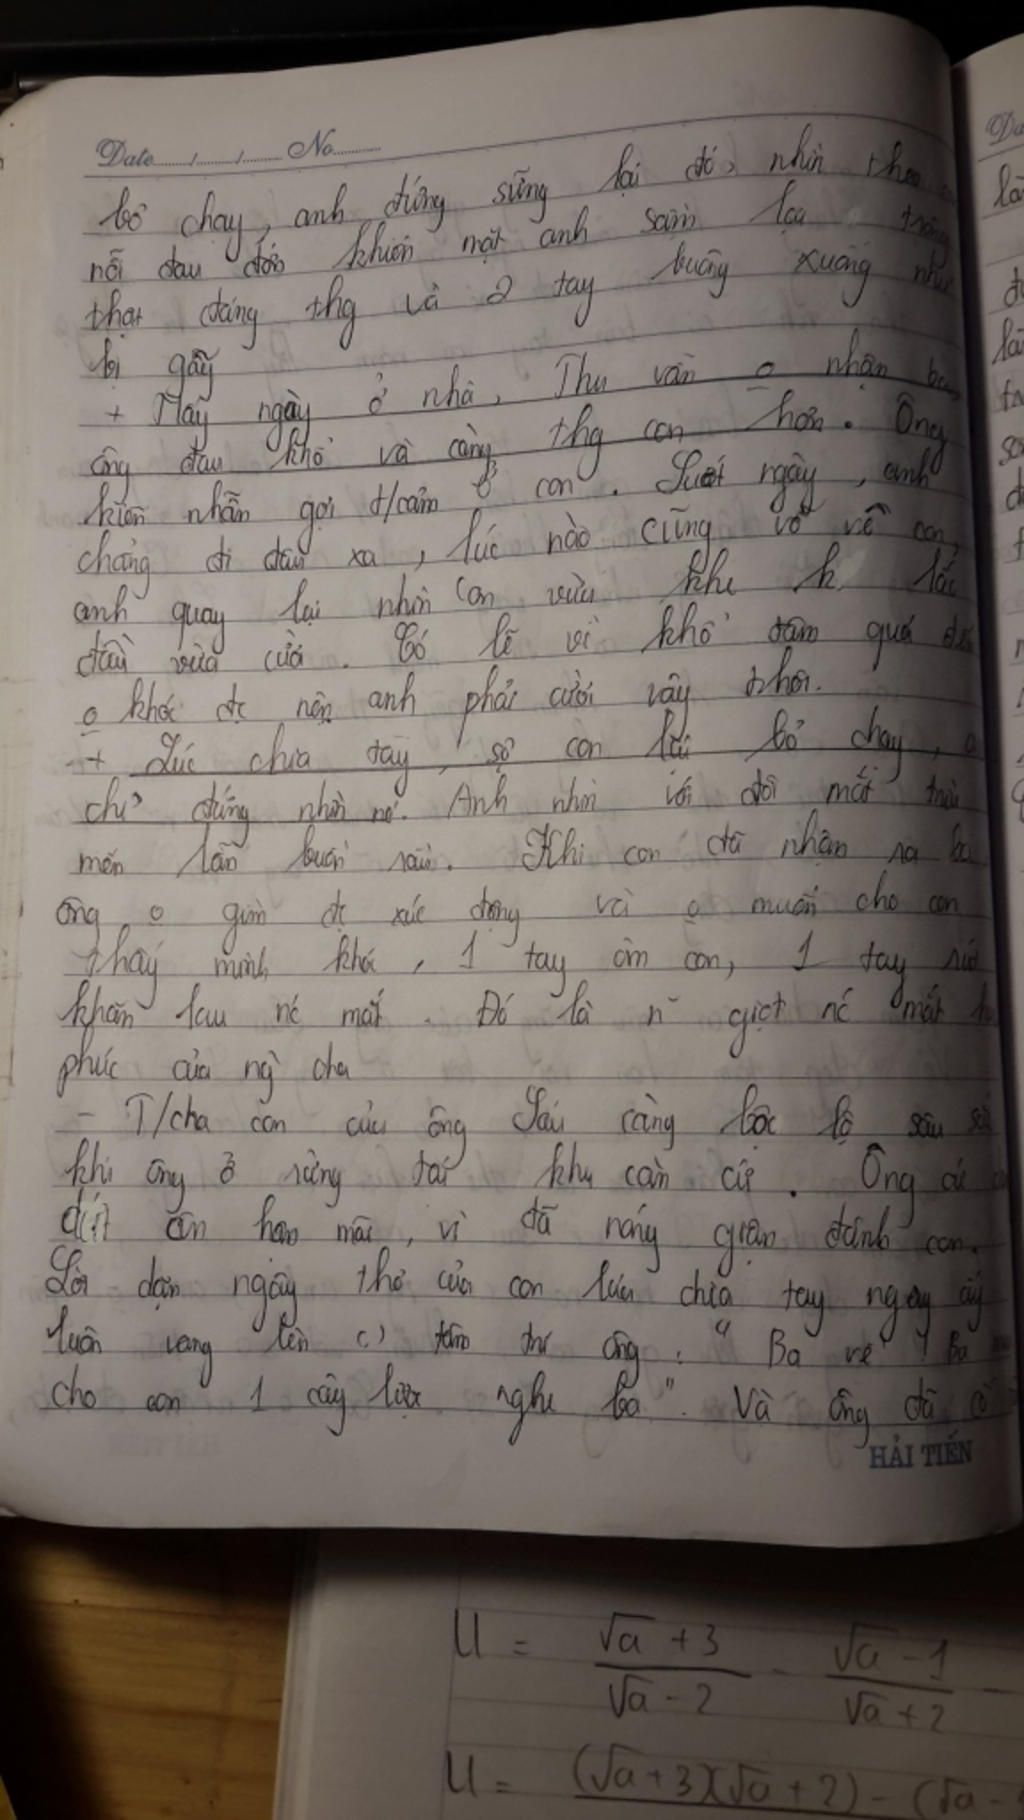 Date...../...../..... No..........
bỏ chạy, anh đứng sững lại đó, nhìn theo
nỗi đau đớn khiến mặt anh sầm lại trông
thật đáng thg và 2 tay buông xuống như
bị gãy
+ Mấy ngày ở nhà, Thu vẫn o nhận ba,
ông đau khổ và càng thg con hơn. Ông
kiên nhẫn gợi t/cảm ở con. Suốt ngày, anh
chẳng đi đâu xa, lúc nào cũng vỗ về con,
anh quay lại nhìn con vừa khe k lắc
đầu vừa cười. Có lẽ vì khổ tâm quá đến
o khóc đc nên anh phải cười vậy thôi.
+ Lúc chia tay, sợ con lại bỏ chạy, a
chỉ đứng nhìn nó. Anh nhìn với đôi mắt trìu
mến lẫn buồn rầu. Khi con đã nhận ra ba
ông o gìm đc xúc động và o muốn cho con
thấy mình khóc, 1 tay ôm con, 1 tay rút
khăn lau nc mắt. Đó là n~ giọt nc mắt h
phúc của ng` cha
- T/cha con của ông Sáu càng bộc lộ sâu sắc
khi ông ở rừng tại khu căn cứ. Ông cứ
dứt ân hận mãi, vì đã nóng giận đánh con.
Lời dặn ngây thơ của con lúc chia tay ngay ấy
luôn vang lên () tâm trí ông: "Ba về! Ba
cho con 1 cây lược nghe ba". Và ông đã cố
HẢI TIẾN
U = (√a + 3)/(√a - 2) - (√a - 1)/(√a + 2) -
U = (√a + 3)(√a + 2) - (√a -